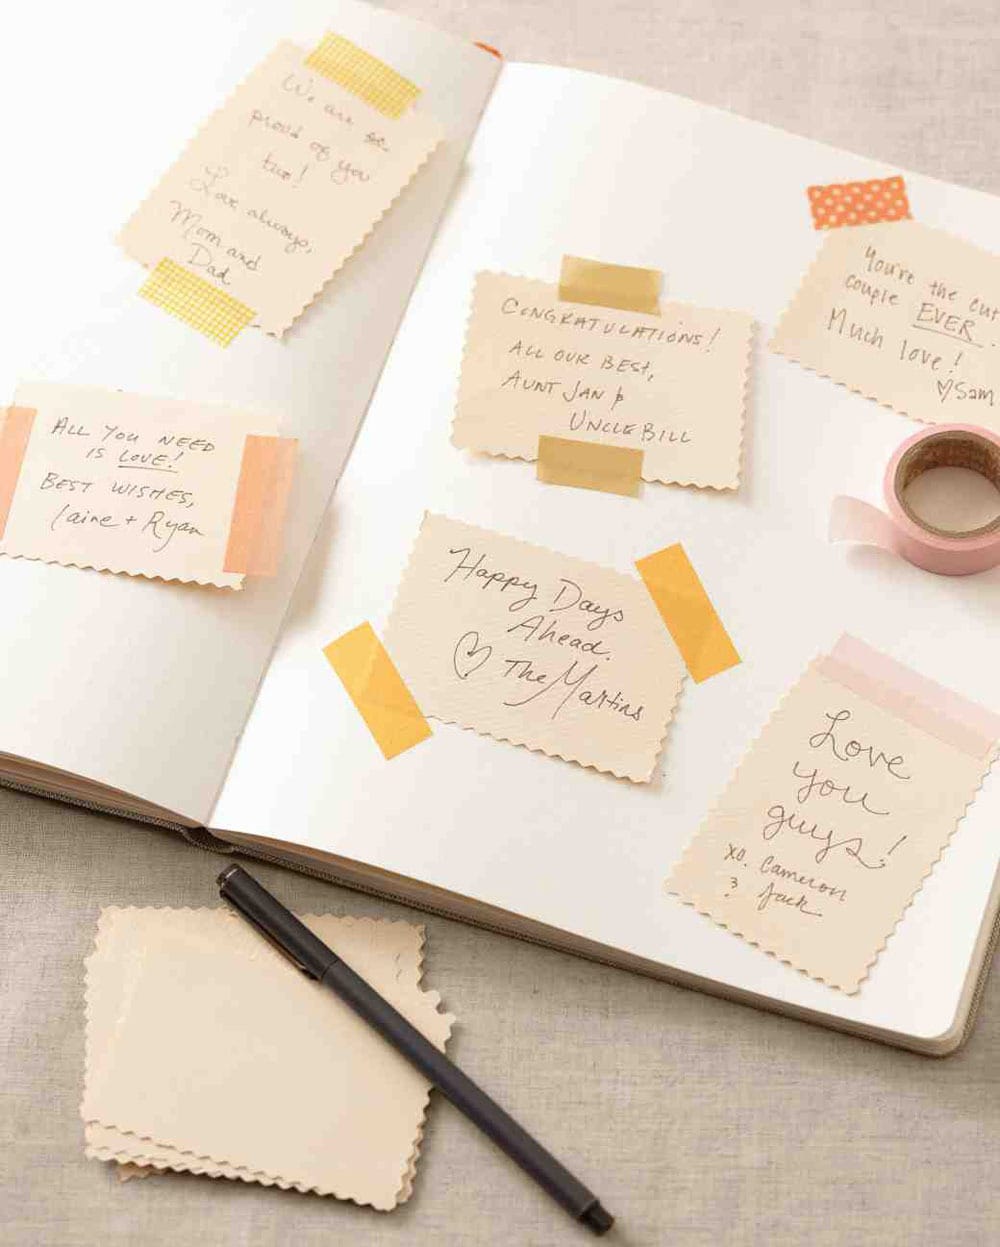 We are so
proud of you
two!
Love always,
Mom and
Dad
ALL YOU NEED
IS LOVE!
BEST WISHES,
Laine + Ryan
CONGRATULATIONS!
ALL OUR BEST,
AUNT JAN &
UNCLE BILL
Happy Days
Ahead.
♡ The Martins
You're the
couple EVER.
Much love!
♡ Sam
Love
you
guys!
XO. Cameron
& Jack